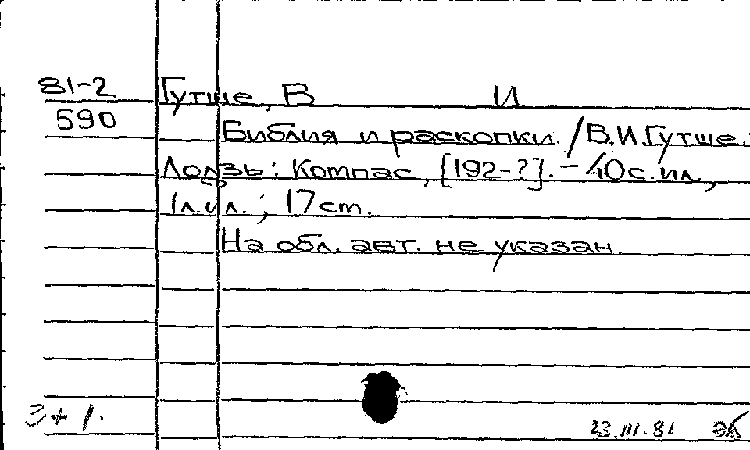 81-2
590
Гутше, В И
Библия и раскопки. / В.И.Гутше.
Лодзь: Компас, [192-?]. - 40с. ил.,
1л.ил.; 17 cm.
На обл. авт. не указан.
3 + 1.
23.III.81